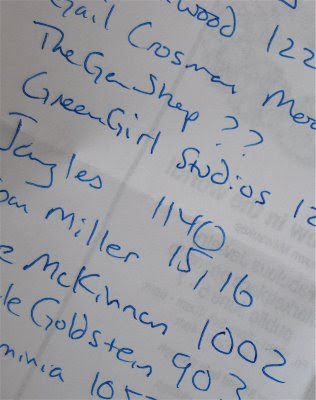 wood 122
Gail Crosman
TheGemShop ??
GreenGirl Studios 12
Jangles 1140
Miller 15,16
McKinnan 1002
Goldstein 903
minia